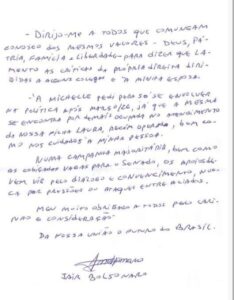 - DIRIJO-ME A TODOS QUE COMUNGAM
CONOSCO DOS MESMOS VALORES - DEUS, PÁ-
TRIA, FAMÍLIA E LIBERDADE - PARA DIZER QUE LA-
MENTO AS CRÍTICAS DA PRÓPRIA DIREITA DIRI-
GIDAS A ALGUNS COLEGAS E À MINHA ESPOSA.
- A MICHELLE PEDI PARA SÓ SE ENVOLVER
NA POLÍTICA APÓS MARÇO/26, JÁ QUE A MESMA
SE ENCONTRA POR DEMAIS OCUPADA NO ATENDIMENTO
DA NOSSA FILHA LAURA, RECÉM OPERADA, BEM CO-
MO NOS CUIDADOS À MINHA PESSOA.
NUMA CAMPANHA MAJORITÁRIA, BEM COMO
AS COBIÇADAS VAGAS PARA O SENADO, OS APOIOS DE-
VEM VIR PELO DIÁLOGO E CONVENCIMENTO, NUN-
CA POR PRESSÕES OU ATAQUES ENTRE ALIADOS.
MEU MUITO OBRIGADO A TODOS PELO CARI-
NHO E CONSIDERAÇÃO
DA NOSSA UNIÃO O FUTURO DO BRASIL.
JAIR BOLSONARO